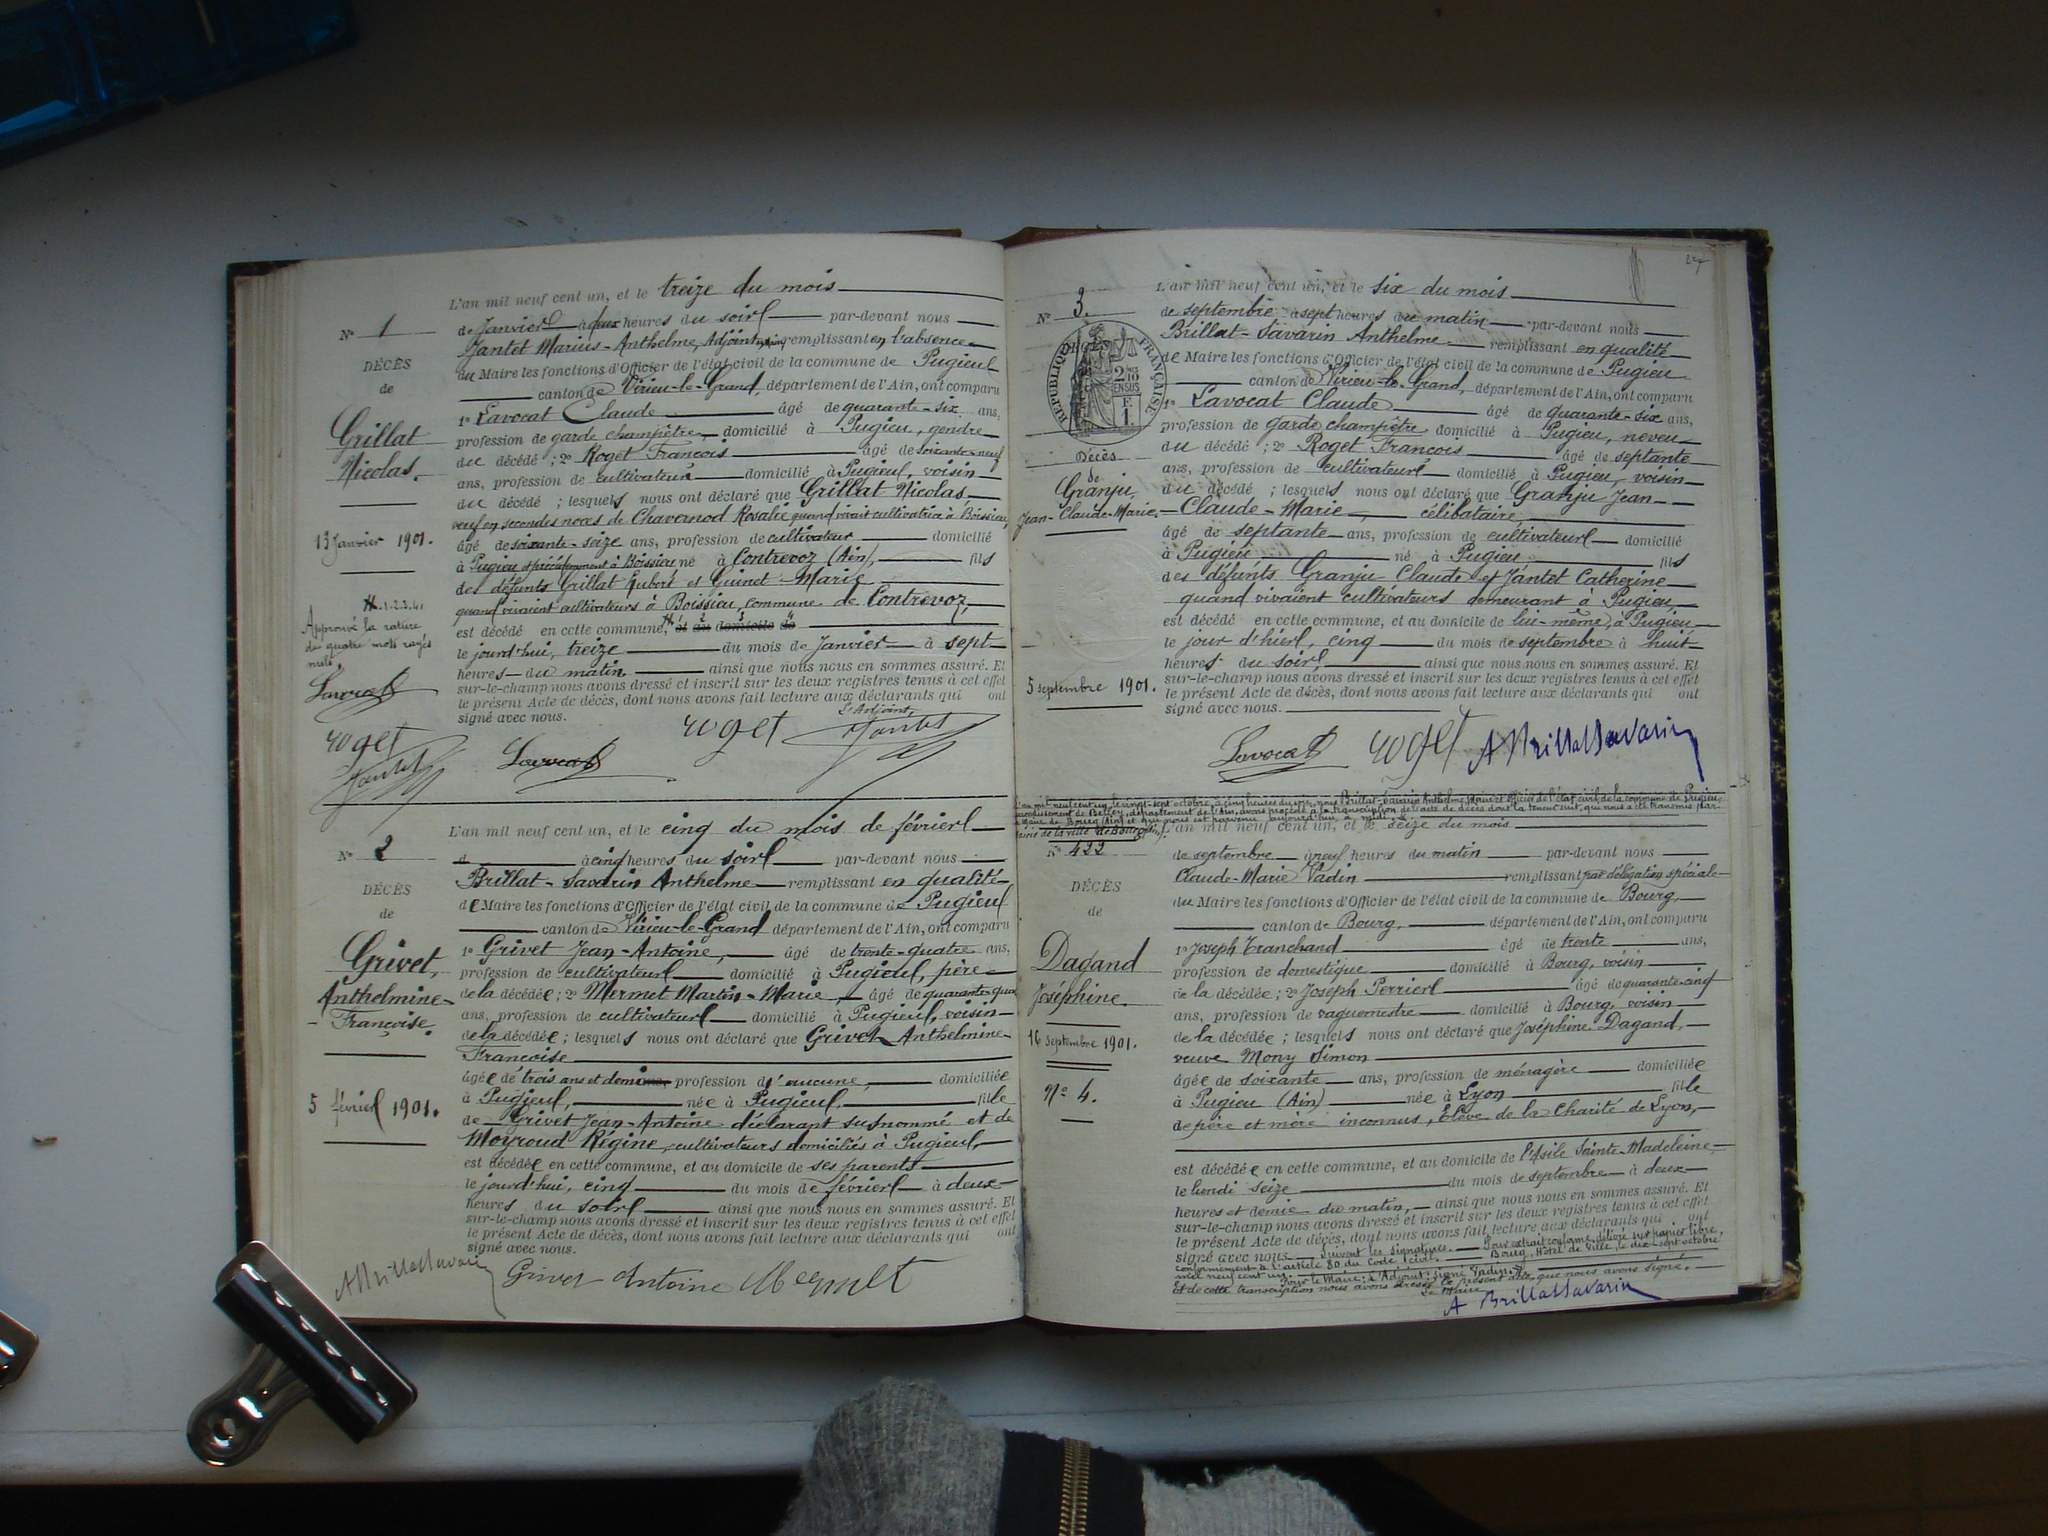 L'an mil neuf cent un, et le treize du mois
de Janvier à deux heures du soir par-devant nous
Jantet Marius-Anthelme, Adjoint remplissant en l'absence
du Maire les fonctions d'Officier de l'état civil de la commune de Pugieu
canton de Virieu-le-Grand, département de l'Ain, ont comparu
1º Lavocat Claude âgé de quarante-six ans,
profession de garde champêtre domicilié à Pugieu, gendre
du décédé ; 2º Roget François âgé de soixante-neuf
ans, profession de cultivateur domicilié à Pugieu, voisin
du décédé ; lesquels nous ont déclaré que Grillat Nicolas
veuf en secondes noces de Chavernod Rosalie quand vivait cultivatrice à Boissieu,
âgé de soixante-seize ans, profession de cultivateur domicilié
à Pugieu et précédemment à Boissieu né à Contrevoz (Ain), fils
des défunts Grillat Hubert et Guinet Marie
quand vivaient cultivateurs à Boissieu, commune de Contrevoz,
est décédé en cette commune, et au domicile de
le jourd'hui, treize du mois de Janvier à sept
heures du matin ainsi que nous nous en sommes assuré. Et
sur-le-champ nous avons dressé et inscrit sur les deux registres tenus à cet effet
le présent Acte de décès, dont nous avons fait lecture aux déclarants qui ont
signé avec nous.
L'Adjoint,
Lavocat roget Jantet
Nº 1
DÉCÈS
de
Grillat
Nicolas.
13 Janvier 1901.
Approuvé la rature
de quatre mots rayés
nuls.
Lavocat
roget
Jantet
L'an mil neuf cent un, et le cinq du mois de février
à cinq heures du soir par-devant nous
Brillat-Savarin Anthelme remplissant en qualité
de Maire les fonctions d'Officier de l'état civil de la commune de Pugieu
canton de Virieu-le-Grand département de l'Ain, ont comparu
1º Grivet Jean-Antoine, âgé de trente-quatre ans,
profession de cultivateur domicilié à Pugieu, père
de la décédée ; 2º Mermet Martin-Marie, âgé de quarante-quatre
ans, profession de cultivateur domicilié à Pugieu, voisin
de la décédée ; lesquels nous ont déclaré que Grivet Anthelmine-
Françoise
âgée de trois ans et demi profession d'aucune, domiciliée
à Pugieu, née à Pugieu, fille
de Grivet Jean-Antoine déclarant susnommé et de
Moyroud Régine, cultivateurs domiciliés à Pugieu,
est décédée en cette commune, et au domicile de ses parents
le jourd'hui, cinq du mois de février à deux
heures du soir ainsi que nous nous en sommes assuré. Et
sur-le-champ nous avons dressé et inscrit sur les deux registres tenus à cet effet
le présent Acte de décès, dont nous avons fait lecture aux déclarants qui ont
signé avec nous.
A BrillatSavarin Grivet Antoine Mermet
Nº 2
DÉCÈS
de
Grivet,
Anthelmine-
Françoise.
5 février 1901.
27
L'an mil neuf cent un, et le six du mois
de septembre à sept heures du matin par-devant nous
Brillat-Savarin Anthelme remplissant en qualité
de Maire les fonctions d'Officier de l'état civil de la commune de Pugieu
canton de Virieu-le-Grand, département de l'Ain, ont comparu
1º Lavocat Claude âgé de quarante-six ans,
profession de garde champêtre domicilié à Pugieu, neveu
du décédé ; 2º Roget François âgé de septante
ans, profession de cultivateur domicilié à Pugieu, voisin
du décédé ; lesquels nous ont déclaré que Granju Jean-
Claude-Marie, célibataire
âgé de septante ans, profession de cultivateur domicilié
à Pugieu né à Pugieu, fils
des défunts Granju Claude et Jantet Catherine
quand vivaient cultivateurs demeurant à Pugieu,
est décédé en cette commune, et au domicile de lui-même, à Pugieu
le jour d'hier, cinq du mois de septembre à huit
heures du soir, ainsi que nous nous en sommes assuré. Et
sur-le-champ nous avons dressé et inscrit sur les deux registres tenus à cet effet
le présent Acte de décès, dont nous avons fait lecture aux déclarants qui ont
signé avec nous.
Lavocat roget A BrillatSavarin
Nº 3.
RÉPUBLIQUE FRANÇAISE
Décès
de
Granju,
Jean-Claude-Marie.
5 septembre 1901.
L'an mil neuf cent un, le vingt-sept octobre, à cinq heures du soir, nous Brillat-Savarin Anthelme, Maire et officier de l'état civil de la commune de Pugieu,
arrondissement de Belley, département de l'Ain, avons procédé à la transcription de l'acte de décès dont la teneur suit, qui nous a été transmis par
le Maire de Bourg (Ain) et qui nous est parvenu aujourd'hui à midi.
Mairie de la ville de Bourg (Ain).
L'an mil neuf cent un, et le seize du mois
de septembre à neuf heures du matin par-devant nous
Claude-Marie Vadin remplissant par délégation spéciale
du Maire les fonctions d'Officier de l'état civil de la commune de Bourg,
canton de Bourg, département de l'Ain, ont comparu
1º Joseph Tranchand âgé de trente ans,
profession de domestique domicilié à Bourg, voisin
de la décédée ; 2º Joseph Perrier âgé de quarante-cinq
ans, profession de vaguemestre domicilié à Bourg, voisin
de la décédée ; lesquels nous ont déclaré que Joséphine Dagand,
veuve Mony Simon
âgée de soixante ans, profession de ménagère domiciliée
à Pugieu (Ain) née à Lyon fille
de père et mère inconnus, Élève de la Charité de Lyon,
est décédée en cette commune, et au domicile de l'Asile Sainte-Madeleine,
le lundi seize du mois de septembre à deux
heures et demie du matin, ainsi que nous nous en sommes assuré. Et
sur-le-champ nous avons dressé et inscrit sur les deux registres tenus à cet effet
le présent Acte de décès, dont nous avons fait lecture aux déclarants qui ont
signé avec nous. Suivent les signatures. Pour extrait conforme délivré sur papier libre,
conformément à l'article 80 du Code civil. Bourg, Hôtel de Ville, le dix-sept octobre
mil neuf cent un. Pour le Maire : l'Adjoint : signé Vadin.
Et de cette transcription nous avons dressé le présent acte que nous avons signé.
Le Maire
A BrillatSavarin
Nº 422
DÉCÈS
de
Dagand
Joséphine.
16 septembre 1901.
Nº 4.